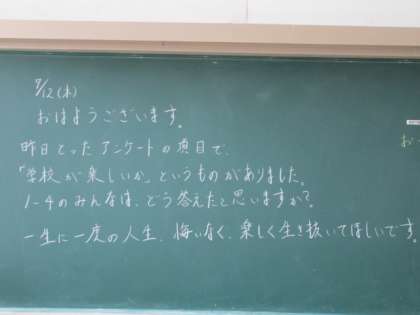 9/12(木)
おはようございます。
昨日とったアンケートの項目で、
「学校が楽しいか」というものがありました。
1-4のみんなは、どう答えたと思いますか?
一生に一度の人生、悔いなく、楽しく生き抜いてほしいです。
お